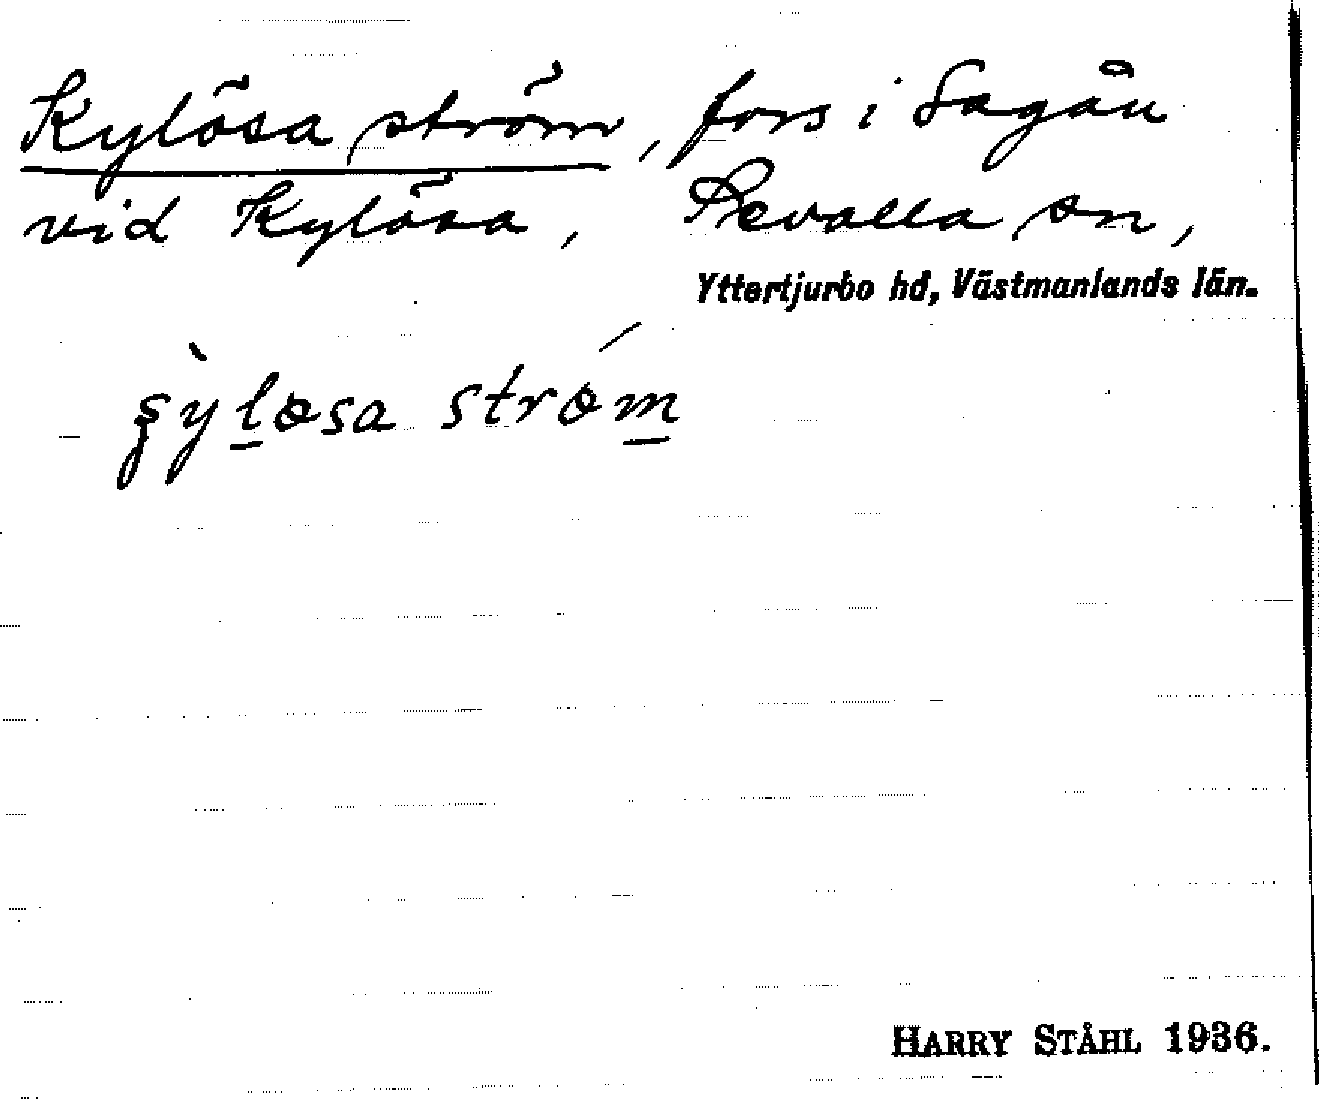 Kylösa ström, fors i Sagån
vid Kylösa, Revalla sn,
Yttertjurbo hd, Västmanlands län.
ström
HARRY STÅHL 1936.